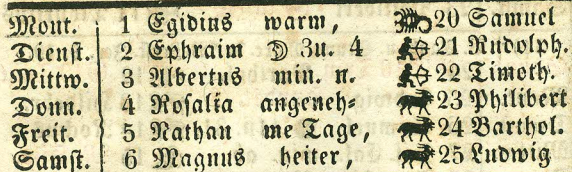 Mont. 1 Egidius warm, 20 Samuel
Dienst. 2 Ephraim ☽ 3u. 4 21 Rudolph.
Mittw. 3 Albertus min. n. 22 Timoth.
Donn. 4 Rosalia angeneh- 23 Philibert
Freit. 5 Nathan me Tage, 24 Barthol.
Samst. 6 Magnus heiter, 25 Ludwig